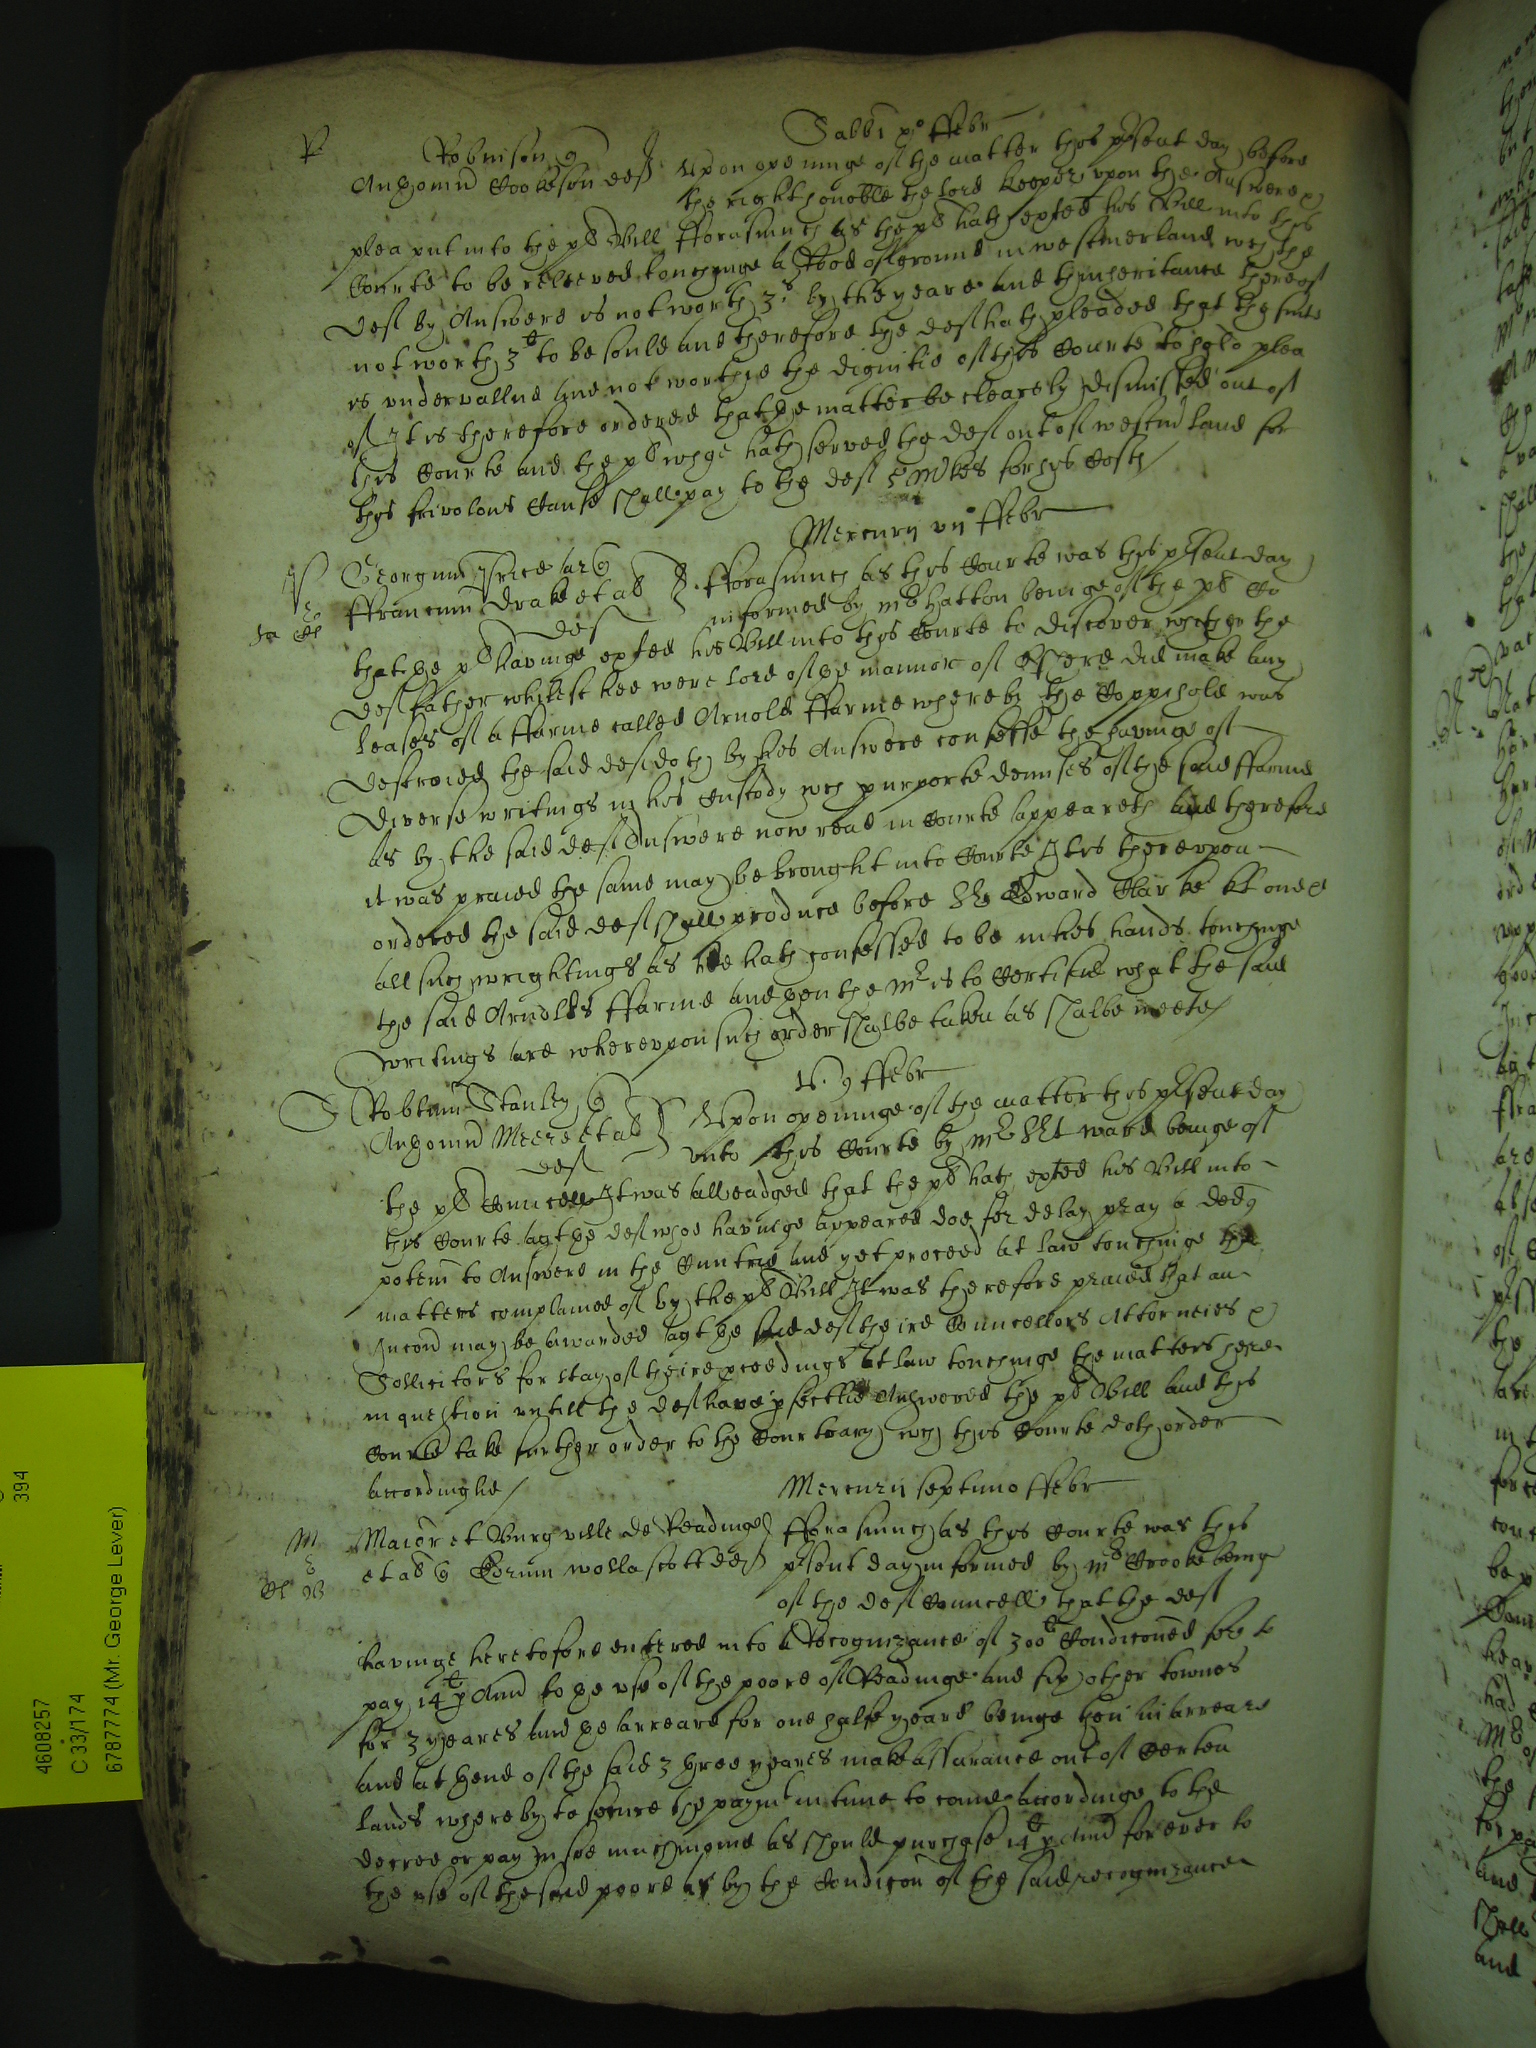 Sabbti po ffebr
R Robinson q
Anthonium Cookeson deft Upon openinge of the matter this pñte day before
the right honoble the lord keeper upon the Answere &
plea put into the pl Bill Fforasmuch as the pl hath exħted his Bill into this
Courte to be releeved touchinge a Rood of ground in westmerland wch the
deft by Answere is not worth 3s by the yeare and thinheritance thereof
not worth 3li to be sould and therefore the deft hath pleaded that the suite
is undervallue and not worthie the dignitie of this Courte to hold plea
of It is therefore ordered that the matter be clearely dismissed out of
this Courte and the pl whoe hath served the deft out of westmland for
this frivolous Cause shall pay to the deft 5 mrkes for his Costs
Mercurij vijo ffebr
Georgium Price ar q
ffrancum Drake et al deft fforasmuch as this Courte was this pñte day
informed by mr Hatton beinge of the pl Co
that the pl havinge exħted his Bill into this Courte to discover whether the
deft father whilest hee were lord of the mannor of Esher did make any
leases of a ffarme called Arnold ffarme whereby the Coppihold was
destroied the said deft doth by his Answere confesse the havinge of
diverse writings in his Custody wch purporte demises of the said ffarme
as by the said deft Answere now read in Courte appeareth and therefore
it was praied the same may be brought into Courte It is thereupon
ordered the said deft shall produce before Sr Edward Clarke kt one &
all such wrightings as hee hath confessed to be in his hands touchinge
the said Arnolds ffarme and then the Mr is to Certifie what the said
writings are whereupon such order shalbe taken as shalbe meete
ffebr
S Robtum Stanley q
Anthonium Meere et al deft Upon openinge of the matter this pñte day
unto this Courte by mr Ward beinge of
the pl Councell It was alleadged that the pl hath exħted his Bill into
this Courte agt the deft whoe havinge appeared doe for delay pray a ded
potem to Answere in the Cuntrie and yet proceed at law touchinge the
matters complained of by the pl Bill It was therefore praied that an
Iniuncon may be awarded agt the said deft theire Councellors Attorneies &
Sollicitors for stay of theire proceedings at law touchinge the matters here
in question untill the deft have pfectlie Answered the pl Bill and this
Courte take further order to the Contrary wch this Courte doth order
accordinglie
Mercurij septimo ffebr
Maior et Burg ville de Readinge
et al q Corum Wollascott deft fforasmuch as this Courte was this
pñsent day informed by mr Crooke being
of the deft Councell that the deft
havinge heretofore entered into a Recognizance of 300li Condiconed for to
pay 14li p Ann to the use of the poore of Readinge and six other townes
for 3 yeares and the arreare for one halfe yeare beinge then in arreare
and at thend of the said 3 three yeares make assurance out of Certen
lands whereby to secure the paymt in time to come accordinge to the
decree or pay in soe much monie as should purchase 14li p Ann for ever to
the use of the said poore as by the Condicon of the said recognizance
4608257
C 33/174
6787774 (Mr. George Lever)
394